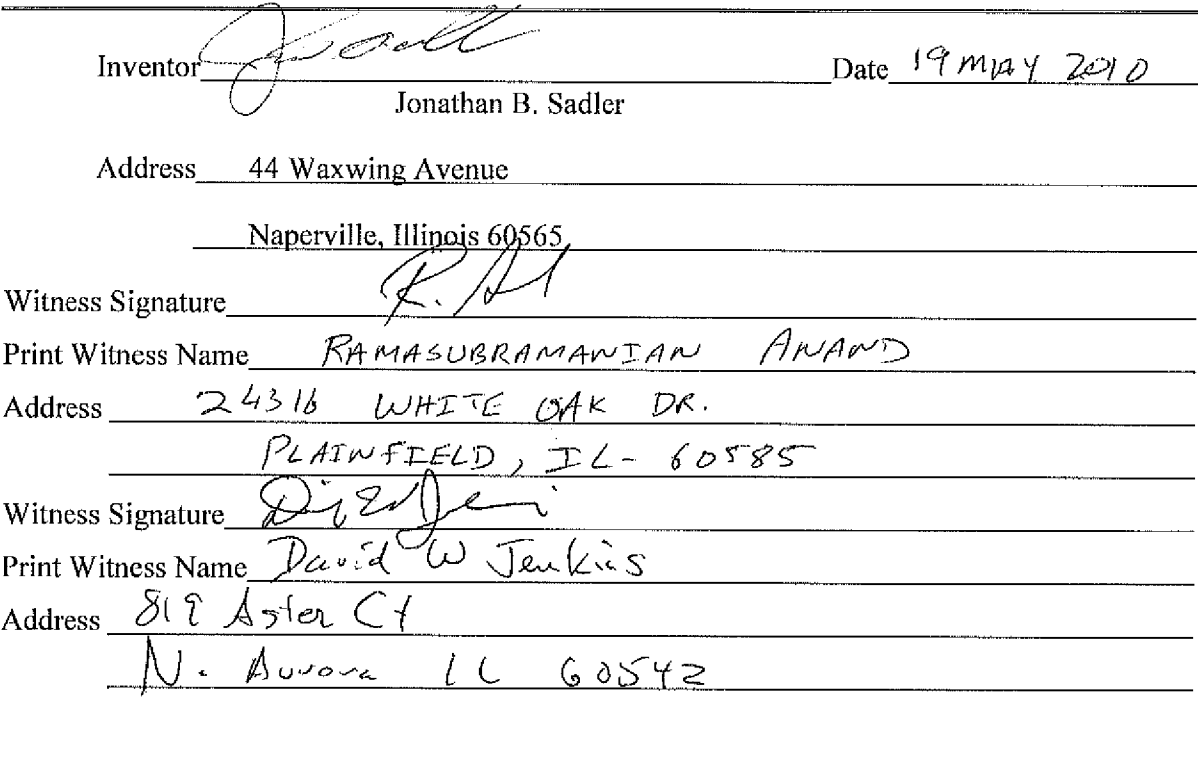 Inventor Date 19 MAY 2010
Jonathan B. Sadler
Address 44 Waxwing Avenue
Naperville, Illinois 60565
Witness Signature R.
Print Witness Name RAMASUBRAMANIAN ANAND
Address 24316 WHITE OAK DR.
PLAINFIELD, IL- 60585
Witness Signature
Print Witness Name David W Jenkins
Address 819 Aster Ct
N. Aurora IL 60542